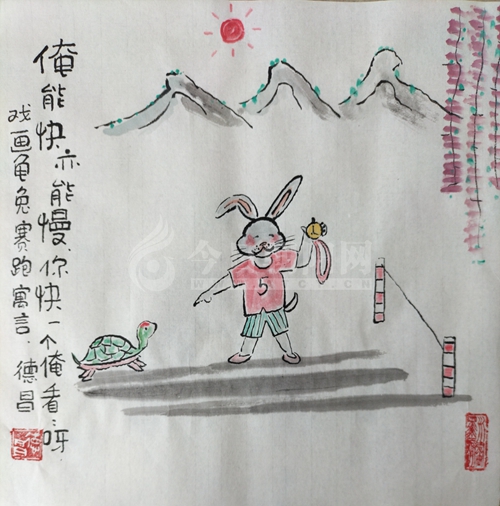 俺能快亦能慢.你快一个俺看.呀.
戏画龟兔赛跑寓言.德昌
5